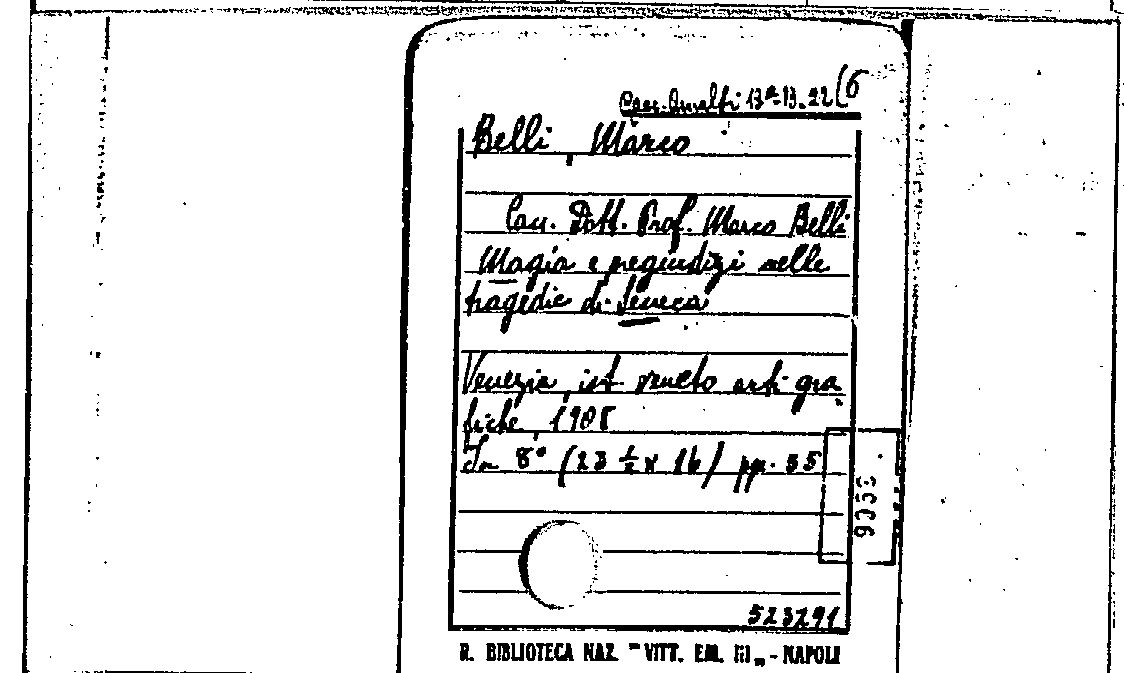 Coll. Amalfi 13ª-13.22(6
Belli, Marco
Can. Dott. Prof. Marco Belli
Magia e pregiudizi nelle
tragedie di Seneca
Venezia, ist. veneto arti gra-
fiche, 1908
In 8° (23 ½ x 16) pp. 35
523291
R. BIBLIOTECA NAZ. "VITT. EM. III„ - NAPOLI